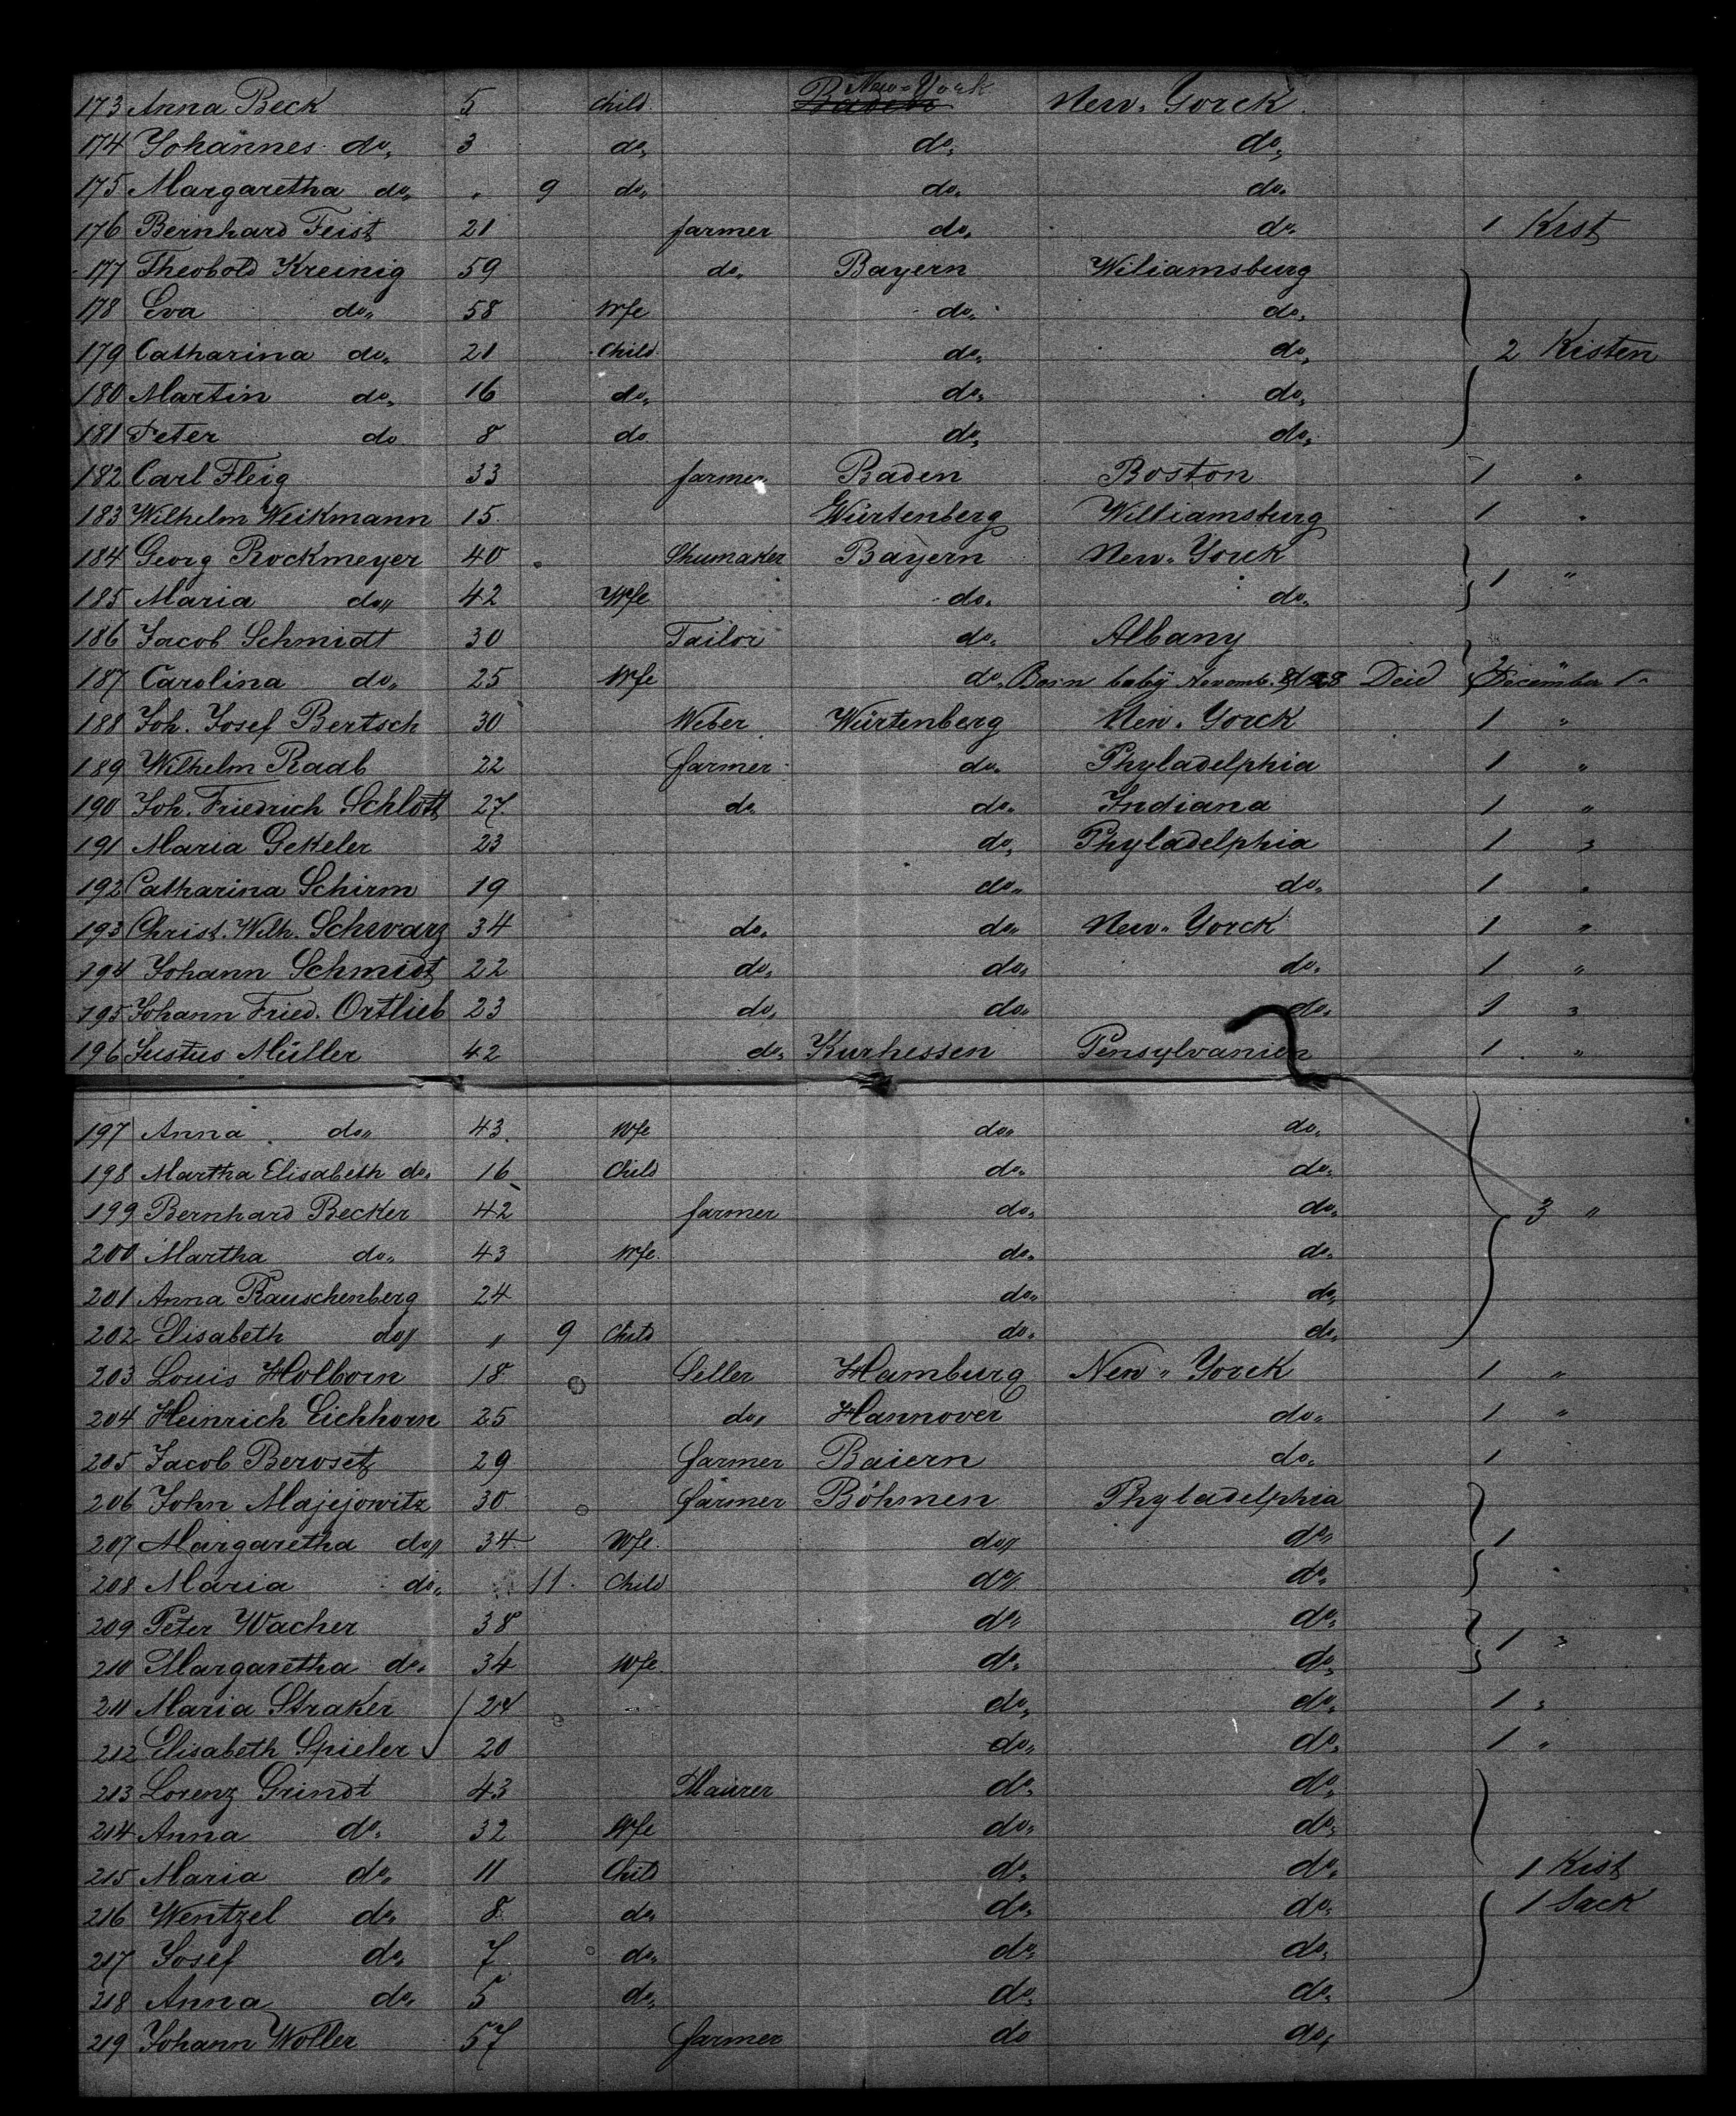 173 Anna Beck 5 Child New-York New-Yorck
174 Johannes do. 3 do. do. do.
175 Margaretha do. " 9 do. do. do.
176 Bernhard Feist 21 farmer do. do. 1 Kist
177 Theobold Kreinig 59 do. Bayern Wiliamsburg
178 Eva do. 58 Wfe do. do.
179 Catharina do. 21 Child do. do. 2 Kisten
180 Martin do. 16 do. do. do.
181 Peter do 8 do do. do.
182 Carl Fleig 33 farmer Baden Boston 1 "
183 Wilhelm Weikmann 15 Würtenberg Williamsburg 1 "
184 Georg Rockmeyer 40 Shumaker Bayern New-Yorck
185 Maria do. 42 Wfe do. do. 1 "
186 Jacob Schmidt 30 Tailor do. Albany
187 Carolina do. 25 Wfe do. Born baby Novemb. Deid December
188 Joh. Josef Bertsch 30 Weber Würtenberg New-Yorck 1 "
189 Wilhelm Raab 22 farmer do. Phyladelphia 1 "
190 Joh. Friedrich Schlott 27 do. do. Indiana 1 "
191 Maria Gekeler 23 do. Phyladelphia 1 "
192 Catharina Schirm 19 do. do. 1 "
193 Christ. Wilh. Schwarz 34 do. do. New-Yorck 1 "
194 Johann Schmidt 22 do. do. do. 1 "
195 Johann Fried. Ortlieb 23 do. do. do. 1 "
196 Justus Müller 42 do. Kurhessen Pensylvanien 1 "
197 Anna do. 43 Wfe do. do.
198 Martha Elisabeth do. 16 Child do. do.
199 Bernhard Becker 42 farmer do. do. 3 "
200 Martha do. 43 Wfe do. do.
201 Anna Rauschenberg 24 do. do.
202 Elisabeth do. " 9 Child do. do.
203 Louis Holborn 18 Seller Hamburg New-Yorck 1 "
204 Heinrich Eichhorn 25 do. Hannover do. 1 "
205 Jacob Bervset 29 farmer Baiern do. 1
206 John Majejowitz 30 farmer Böhmen Phyladelphia
207 Margaretha do. 34 Wfe do. do. 1
208 Maria do. 11 Child do. do.
209 Peter Wacher 38 do. do.
210 Margaretha do. 34 Wfe do. do. 1 "
211 Maria Straker 24 do. do. 1 "
212 Elisabeth Spieler 20 do. do. 1 "
213 Lorenz Grindt 43 Maurer do. do.
214 Anna do. 32 Wfe do. do.
215 Maria do. 11 Child do. do. 1 Kist
216 Wentzel do. 8 do. do. do. 1 Sack
217 Josef do. 7 do. do. do.
218 Anna do. 5 do. do. do.
219 Johann Woller 57 farmer do do.